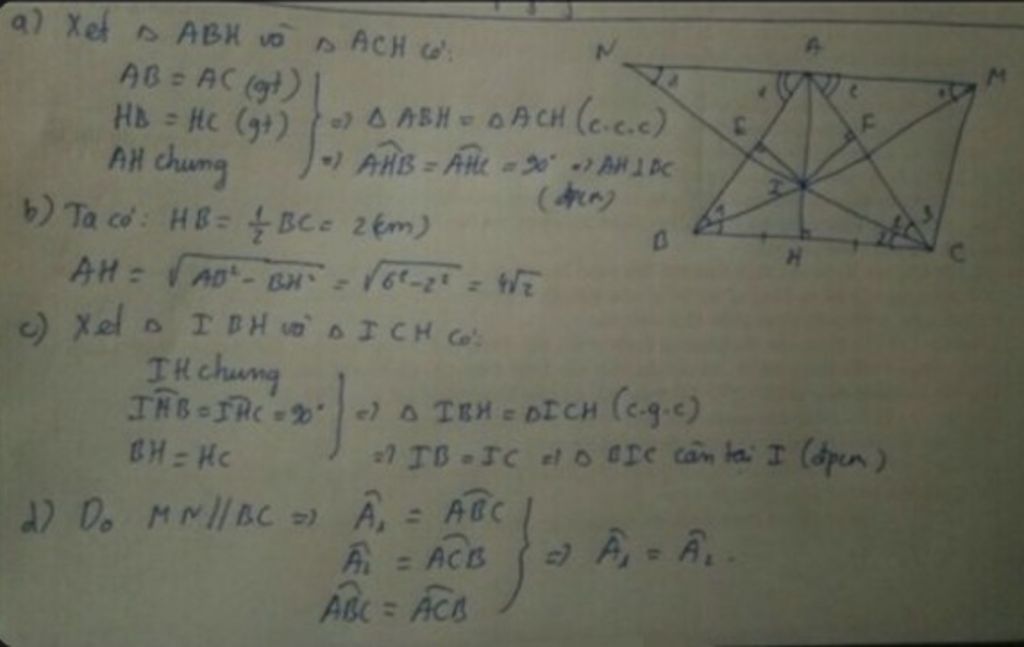 a) Xét △ ABH và △ ACH có:
AB = AC (gt)
HB = HC (gt) ⇒ △ ABH = △ ACH (c.c.c)
AH chung ⇒ \widehat{AHB} = \widehat{AHC} = 90° ⇒ AH ⊥ BC
(đpcm)
b) Ta có: HB = 1/2 BC = 2(cm)
AH = √(AB² - BH²) = √(6² - 2²) = 4√2
c) Xét △ IBH và △ ICH có:
IH chung
\widehat{IHB} = \widehat{IHC} = 90° ⇒ △ IBH = △ ICH (c-g-c)
BH = HC ⇒ IB = IC ⇒ △ BIC cân tại I (đpcm)
d) Do MN // BC ⇒ Â₁ = \widehat{ABC}
Â₂ = \widehat{ACB} ⇒ Â₁ = Â₂.
\widehat{ABC} = \widehat{ACB}
N A M
E F
I
B H C